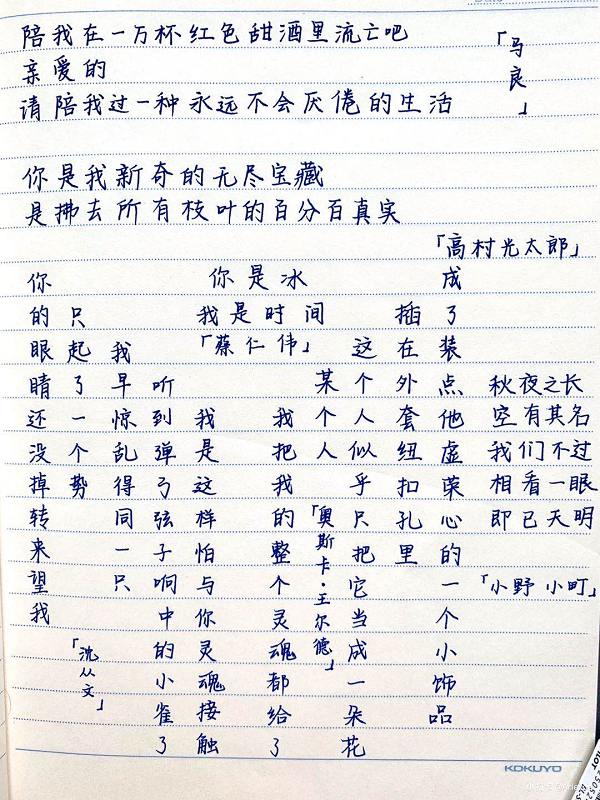 陪我在一万杯红色甜酒里流亡吧
亲爱的
请陪我过一种永远不会厌倦的生活
「马良」
你是我新奇的无尽宝藏
是拂去所有枝叶的百分百真实
「高村光太郎」
你的眼睛还没掉转来望我
只起了一个势
我早惊乱得同一只
听到弹弓弦子响中的小雀了
我是这样怕与你灵魂接触
「沈从文」
你是冰
我是时间
「蔡仁伟」
我把我的整个灵魂都给了
某个人
这个人似乎只把它当成一朵花
插在外套纽扣孔里
成了装点他虚荣心的一个小饰品
「奥斯卡·王尔德」
秋夜之长
空有其名
我们不过
相看一眼
即已天明
「小野 小町」
KOKUYO